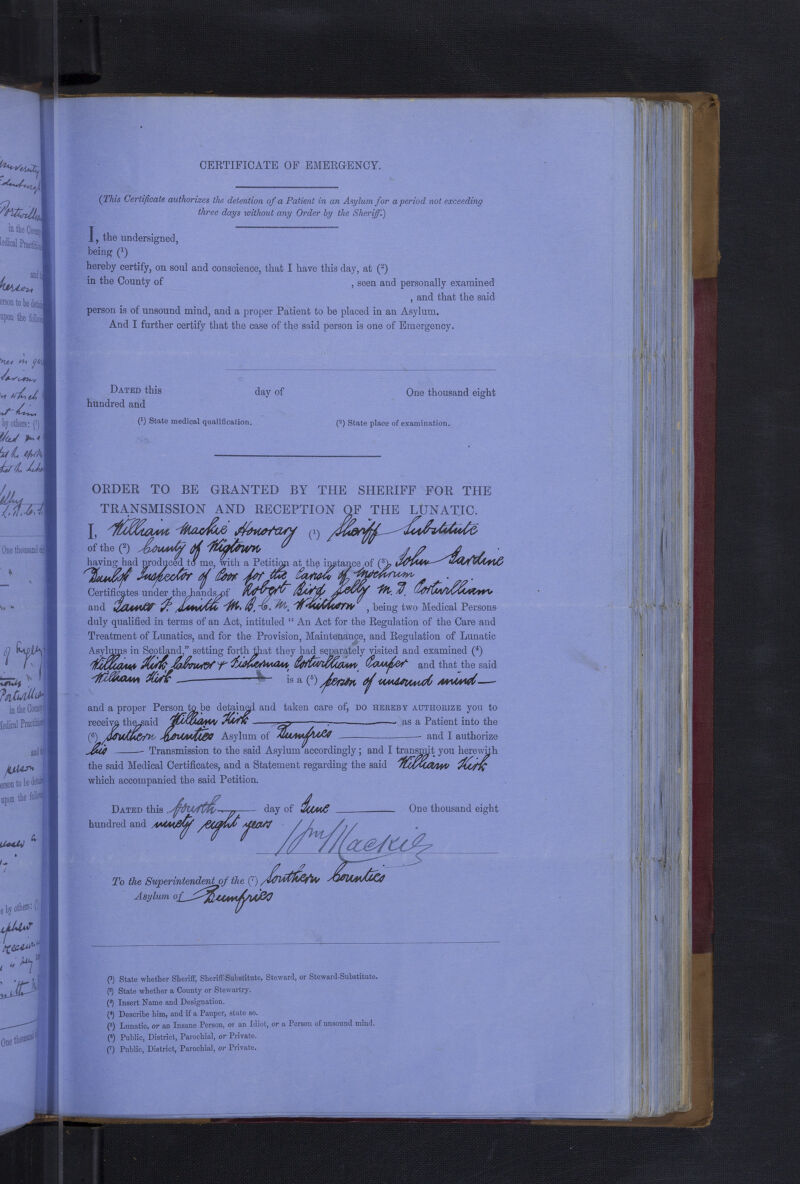 CERTIFICATE OF EMERGENCY.
(This Certificate authorizes the detention of a Patient in an Asylum for a period not exceeding
three days without any Order by the Sheriff.)
I, the undersigned,
being (¹)
hereby certify, on soul and conscience, that I have this day, at (²)
in the County of , seen and personally examined
, and that the said
person is of unsound mind, and a proper Patient to be placed in an Asylum.
And I further certify that the case of the said person is one of Emergency.
DATED this day of One thousand eight
hundred and
(¹) State medical qualification. (²) State place of examination.
ORDER TO BE GRANTED BY THE SHERIFF FOR THE
TRANSMISSION AND RECEPTION OF THE LUNATIC.
I, William Mackie Honorary (¹) Sheriff Substitute
of the (²) County of Wigtown
having had produced to me, with a Petition at the instance of (³) John Jardine
Dunlop Inspector of Poor for the Parish of Mochrum
Certificates under the hands of Robert Bird Jelly M.D. Portwilliam
and James F. Smith M.B.C.M. Whithorn , being two Medical Persons
duly qualified in terms of an Act, intituled “ An Act for the Regulation of the Care and
Treatment of Lunatics, and for the Provision, Maintenance, and Regulation of Lunatic
Asylums in Scotland,” setting forth that they had separately visited and examined (⁴)
William Kirk, labourer & Fisherman, Portwilliam, Pauper and that the said
William Kirk is a (⁵) person of unsound mind
and a proper Person to be detained and taken care of, DO HEREBY AUTHORIZE you to
receive the said William Kirk as a Patient into the
(⁶) Southern Counties Asylum of Dumfries and I authorize
his Transmission to the said Asylum accordingly ; and I transmit you herewith
the said Medical Certificates, and a Statement regarding the said William Kirk
which accompanied the said Petition.
DATED this fourth day of June One thousand eight
hundred and ninety eight years
Wm Mackie
To the Superintendent of the (⁷) Southern Counties
Asylum of Dumfries
(¹) State whether Sheriff, Sheriff-Substitute, Steward, or Steward-Substitute.
(²) State whether a County or Stewartry.
(³) Insert Name and Designation.
(⁴) Describe him, and if a Pauper, state so.
(⁵) Lunatic, or an Insane Person, or an Idiot, or a Person of unsound mind.
(⁶) Public, District, Parochial, or Private.
(⁷) Public, District, Parochial, or Private.